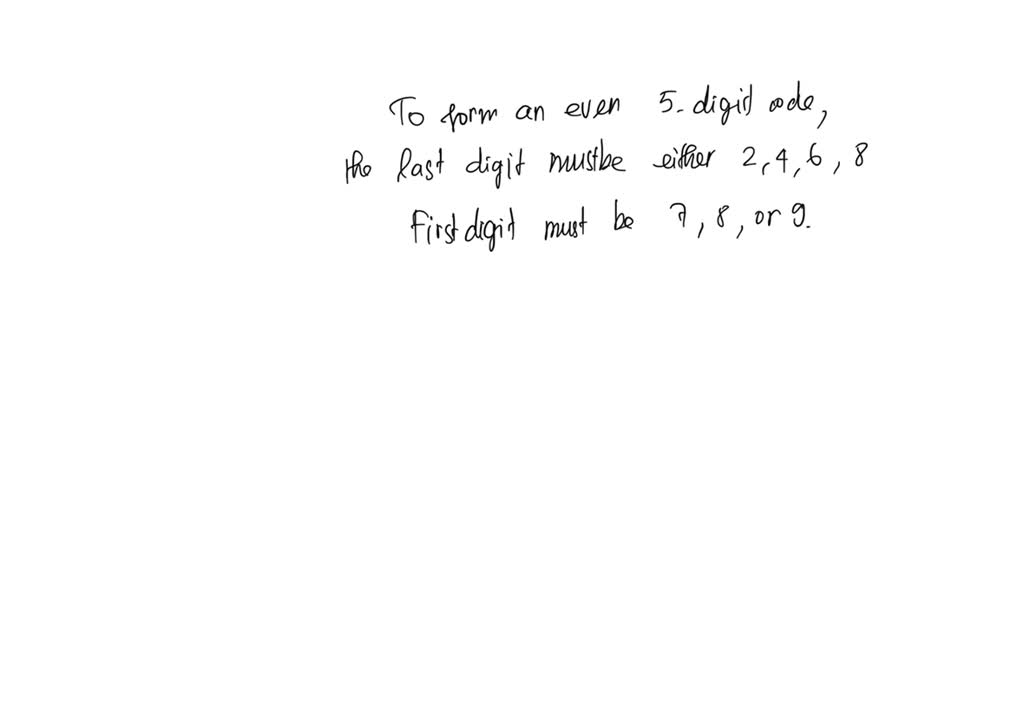 To form an even 5-digit code,
the last digit must be either 2, 4, 6, 8
First digit must be 7, 8, or 9.